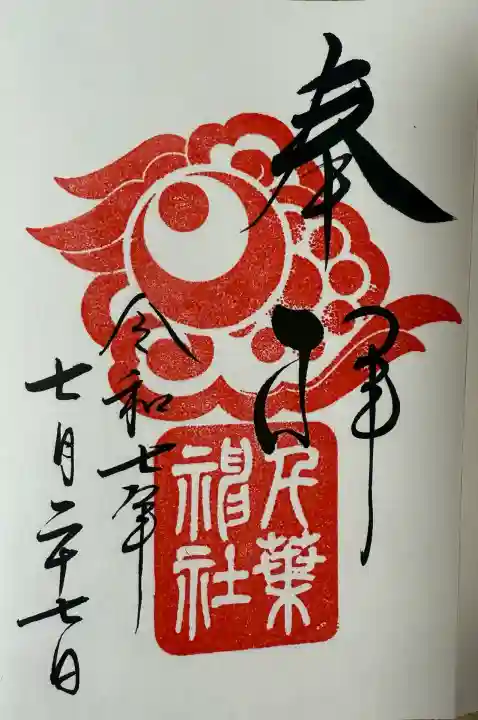 奉拝
千葉
神社
令和七年
七月二十七日